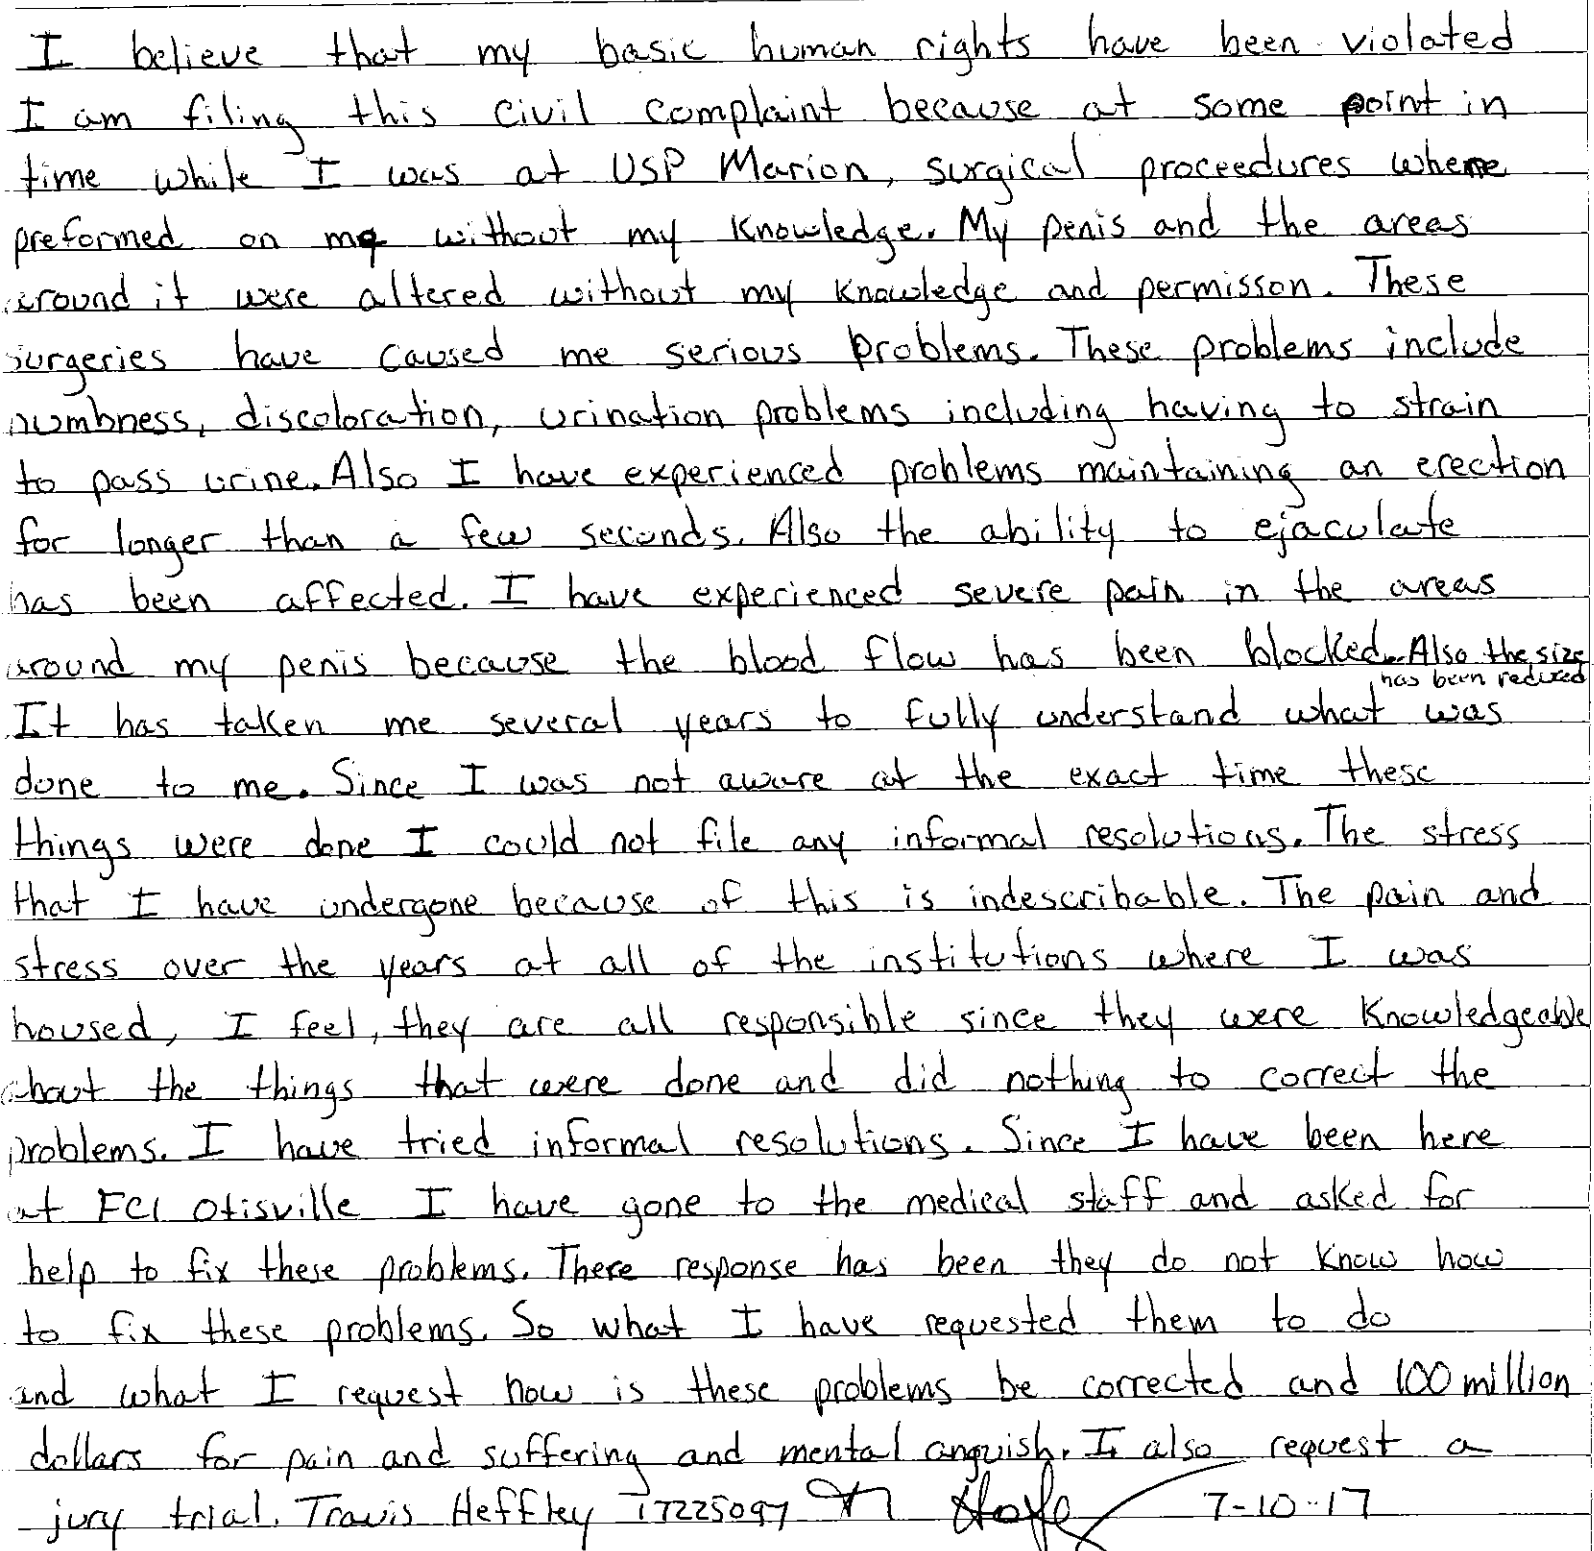 I believe that my basic human rights have been violated
I am filing this civil complaint because at some point in
time while I was at USP Marion, surgical proceedures where
preformed on me without my knowledge. My penis and the areas
around it were altered without my knowledge and permisson. These
surgeries have caused me serious problems. These problems include
numbness, discoloration, urination problems including having to strain
to pass urine. Also I have experienced problems maintaining an erection
for longer than a few seconds. Also the ability to ejaculate
has been affected. I have experienced severe pain in the areas
around my penis because the blood flow has been blocked. Also the size
has been reduced
It has taken me several years to fully understand what was
done to me. Since I was not aware at the exact time these
things were done I could not file any informal resolutions. The stress
that I have undergone because of this is indescribable. The pain and
stress over the years at all of the institutions where I was
housed, I feel, they are all responsible since they were knowledgeable
about the things that were done and did nothing to correct the
problems. I have tried informal resolutions. Since I have been here
at FCI Otisville I have gone to the medical staff and asked for
help to fix these problems. There response has been they do not know how
to fix these problems. So what I have requested them to do
and what I request now is these problems be corrected and 100 million
dollars for pain and suffering and mental anguish. I also request a
jury trial. Travis Heffley 17225097 7-10-17